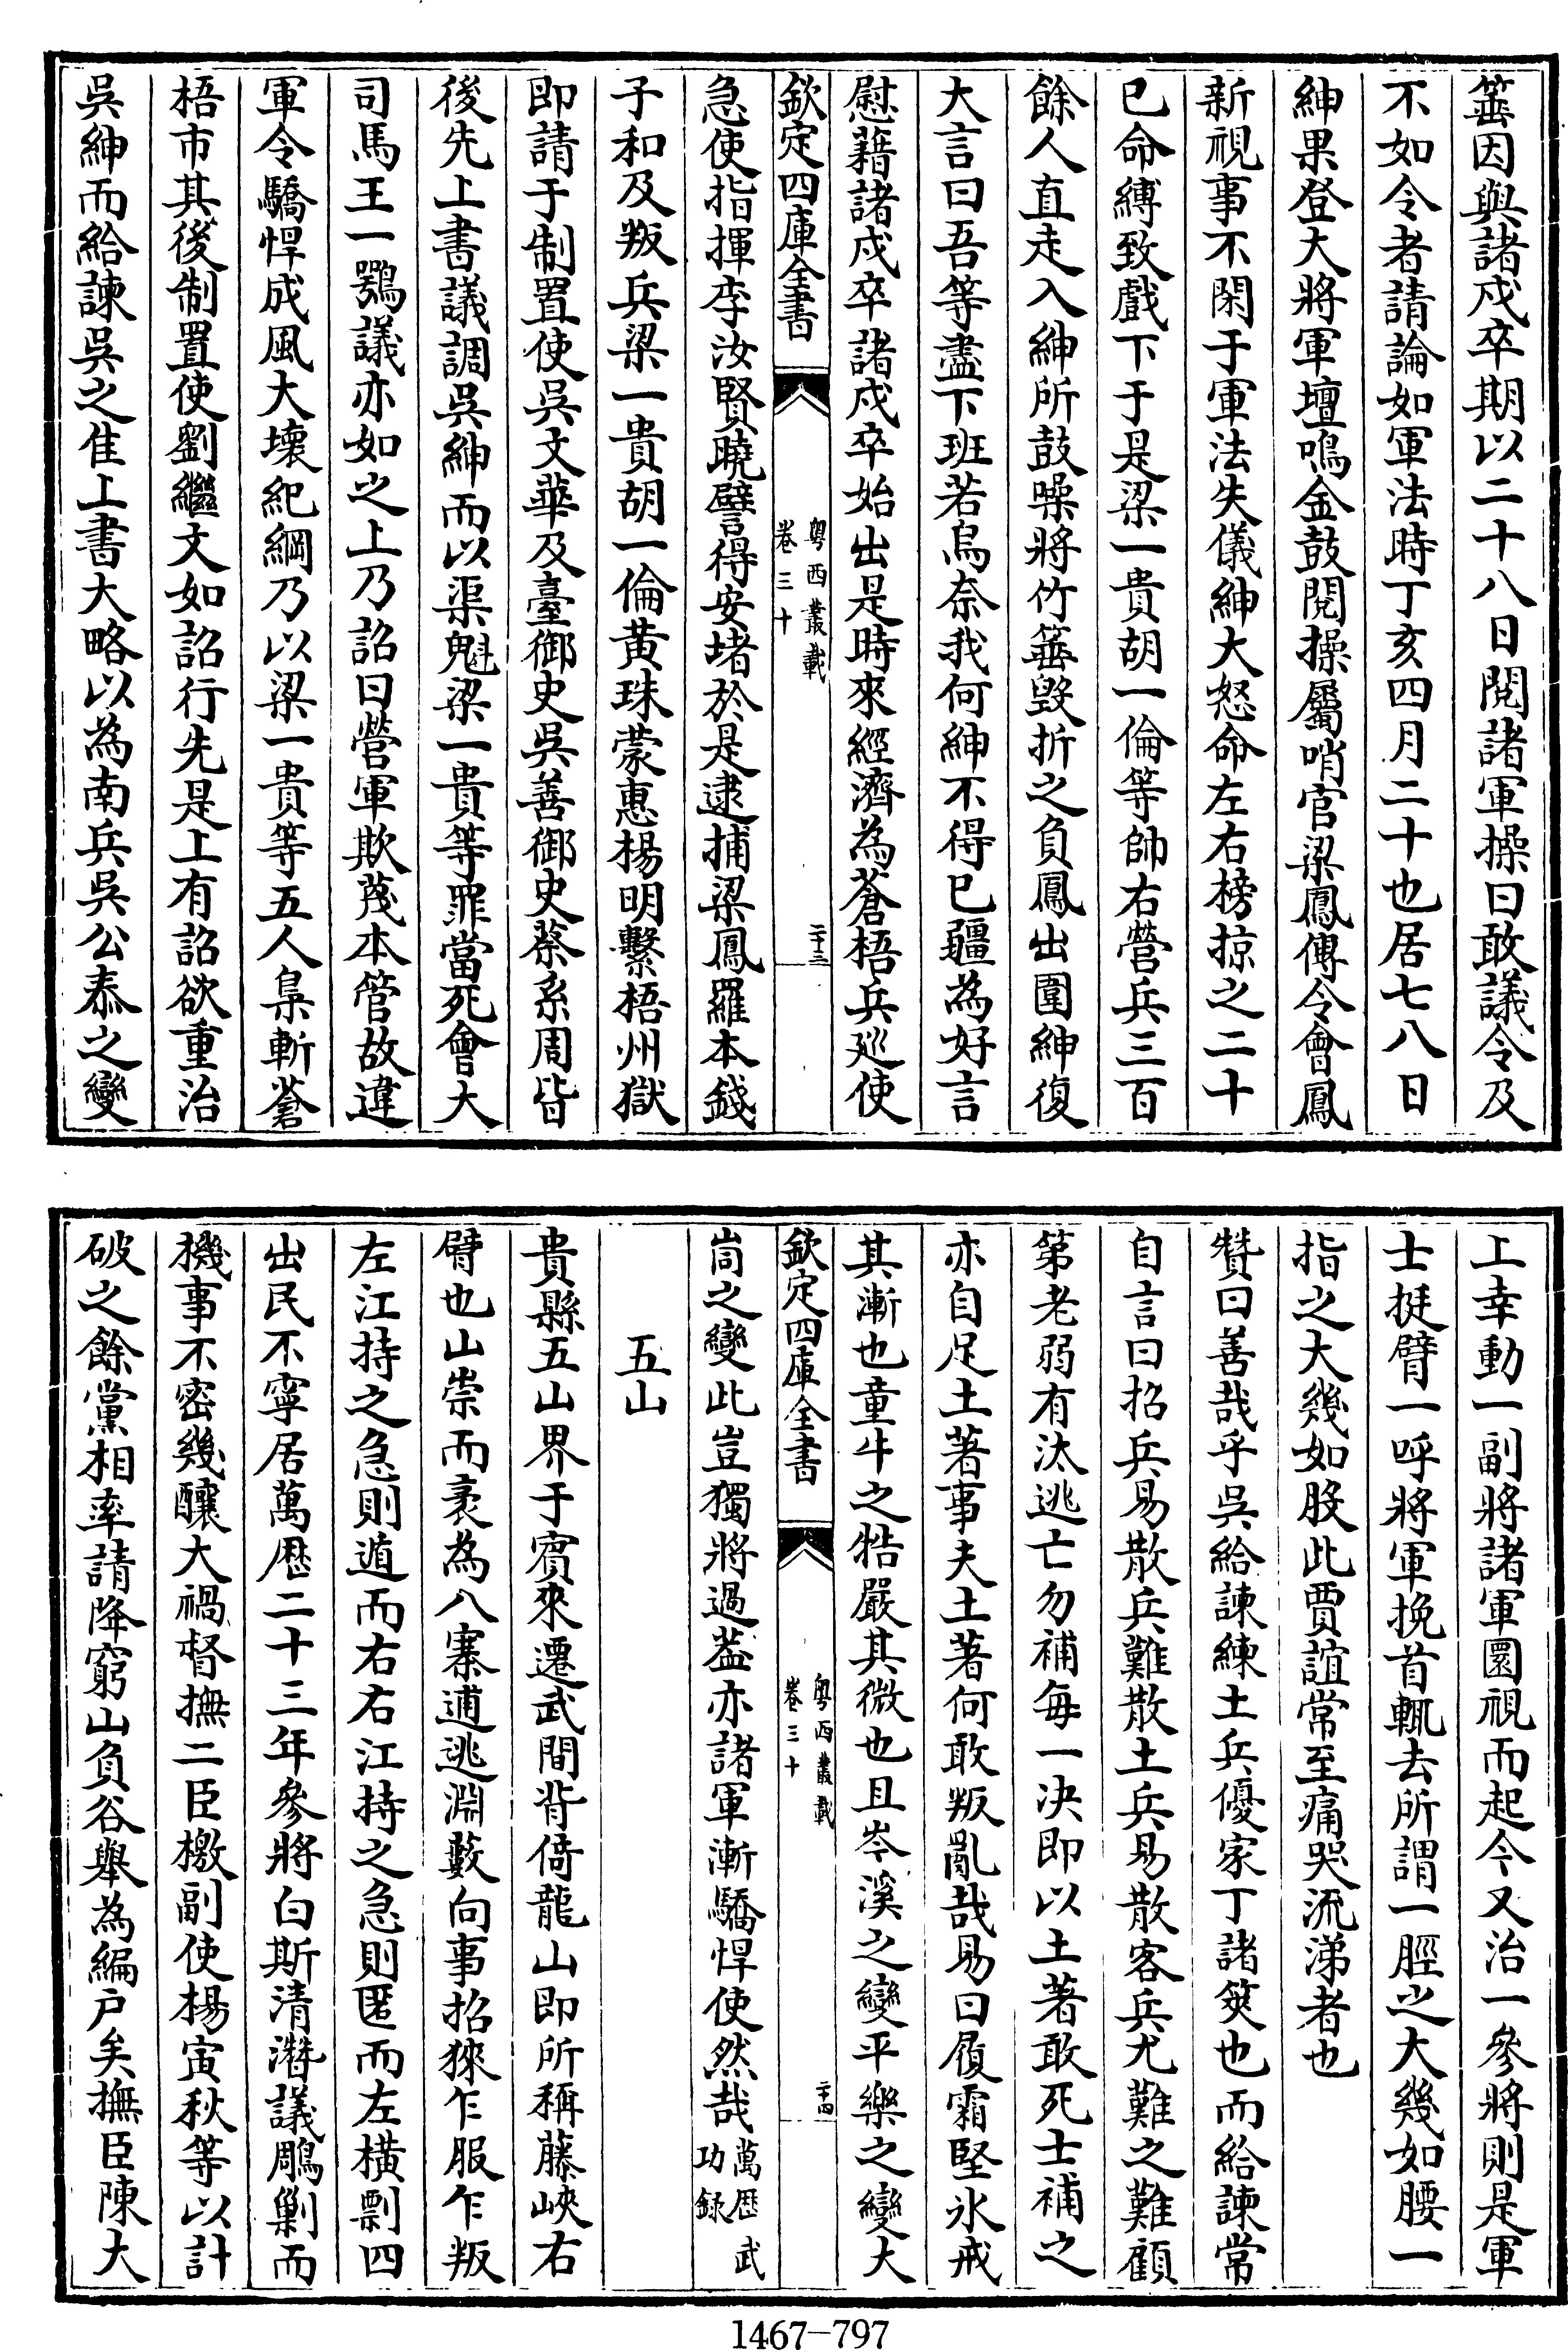 箠因與諸戍卒期以二十八日閱諸軍操曰敢議令及
不如令者請論如軍法時丁亥四月二十也居七八日
紳果登大將軍壇鳴金鼓閱操屬哨官梁鳳傳令會鳳
新視事不閑于軍法失儀紳大怒命左右榜掠之二十
已命縛致戲下于是梁一貴胡一倫等帥右營兵三百
餘人直走入紳所鼓噪將竹箠毀折之負鳳出圍紳復
大言曰吾等盡下班若烏奈我何紳不得已疆為好言
慰藉諸戍卒諸戍卒始出是時來經濟為蒼梧兵廵使
欽定四庫全書
粤西叢載
卷三十
二十三
急使指揮李汝賢曉譬得安堵於是逮捕梁鳳羅本錢
子和及叛兵梁一貴胡一倫黃珠蒙惠楊明繫梧州獄
即請于制置使吳文華及臺御史吳善御史蔡系周皆
後先上書議調吳紳而以渠魁梁一貴等罪當死會大
司馬王一鶚議亦如之上乃詔曰營軍欺蔑本管故違
軍令驕悍成風大壞紀綱乃以梁一貴等五人梟斬蒼
梧市其後制置使劉繼文如詔行先是上有詔欲重治
吳紳而給諫吳之隹上書大略以為南兵吳公泰之變
上幸動一副將諸軍圜視而起今又治一參將則是軍
士挺臂一呼將軍挽首輒去所謂一脛之大幾如腰一
指之大幾如股此賈誼常至痛哭流涕者也
贊曰善哉乎吳給諫練土兵優家丁諸筴也而給諫常
自言曰招兵易散兵難散土兵易散客兵尤難之難顧
第老弱有汰逃亡勿補每一決即以土著敢死士補之
亦自足土著事夫土著何敢叛亂哉易曰履霜堅氷戒
其漸也童牛之牿嚴其微也且岑溪之變平樂之變大
欽定四庫全書
粤西叢載
卷三十
二十四
峝之變此豈獨將過葢亦諸軍漸驕悍使然哉萬歴武功錄
五山
貴縣五山界于賓來遷武間背倚龍山即所稱藤峽右
臂也山崇而袤為八寨逋逃淵藪向事招徠乍服乍叛
左江持之急則遁而右右江持之急則匿而左橫剽四
出民不寧居萬歴二十三年參將白斯清濳議鵰剿而
機事不密幾釀大禍督撫二臣檄副使楊寅秋等以計
破之餘黨相率請降窮山負谷舉為編戶矣撫臣陳大
1467-797